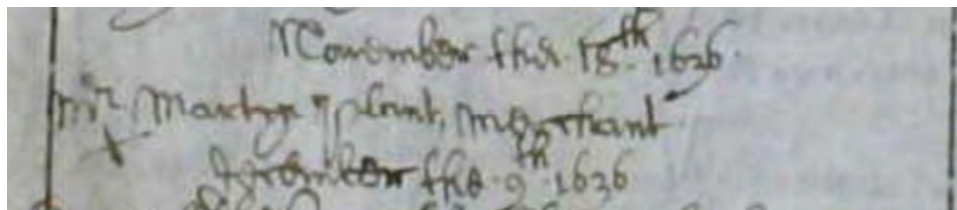 November the 18th 1626
mr Martyn plant, merchant
December the 9th 1626